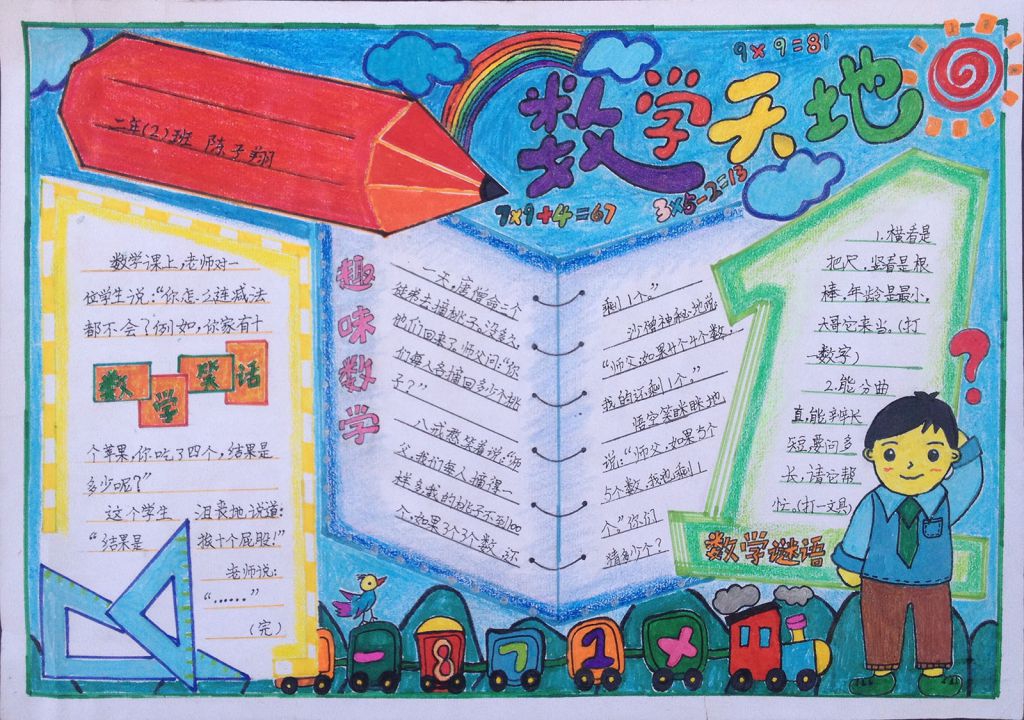 二年(2)班 陈子翔
数学天地
9×9=81
7×9+4=67
3×5-2=13
数学课上,老师对一
位学生说:“你怎么连减法
都不会了例如,你家有十
数学笑话
个苹果,你吃了四个,结果是
多少呢?”
这个学生 沮丧地说道:
“结果是 挨十个屁股!”
老师说:
“......”
(完)
趣味数学
一天,唐僧命三个
徒弟去摘桃子。没多久,
他们回来了。师父问:“你
们每人各摘回多少个桃
子?”
八戒憨笑着说:“师
父,我们每人摘得一
样多,我的桃子不到100
个,如果3个3个数,还
剩1个。”
沙僧神秘地说
“师父,如果4个4个数,
我的还剩1个。”
悟空笑眯眯地
说:“师父,如果5个
5个数,我也剩1
个。”你们
猜多少个?
1.横看是
把尺,竖看是根
棒,年龄是最小,
大哥它来当。(打
一数字)
2.能分曲
直,能辛辛长
短,要问多
长,请它帮
忙。(打一文具)
数学谜语
?
- 8 7 1 ×